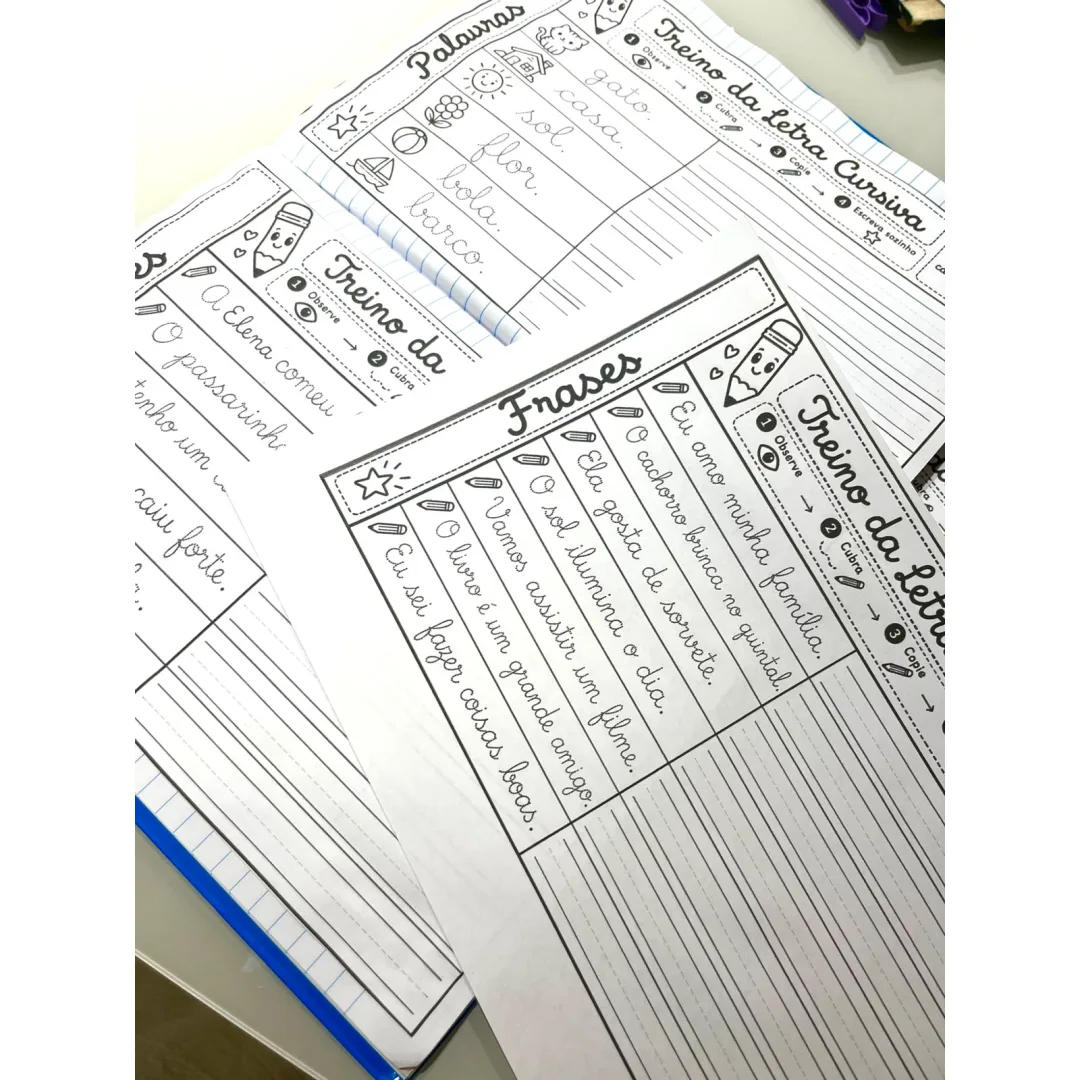 Palavras
Treino da Letra Cursiva
1 Observe → 2 Cubra → 3 Copie → 4 Escreva sozinho
gato.
casa.
sol.
flor.
bola.
barco.
Treino da
1 Observe → 2 Cubra
A Elena comeu
O passarinh
tenho um
caiu forte.
Frases
Treino da Letra
1 Observe → 2 Cubra → 3 Copie →
Eu amo minha família.
O cachorro brinca no quintal.
Ela gosta de sorvete.
O sol ilumina o dia.
Vamos assistir um filme.
O livro é um grande amigo.
Eu sei fazer coisas boas.